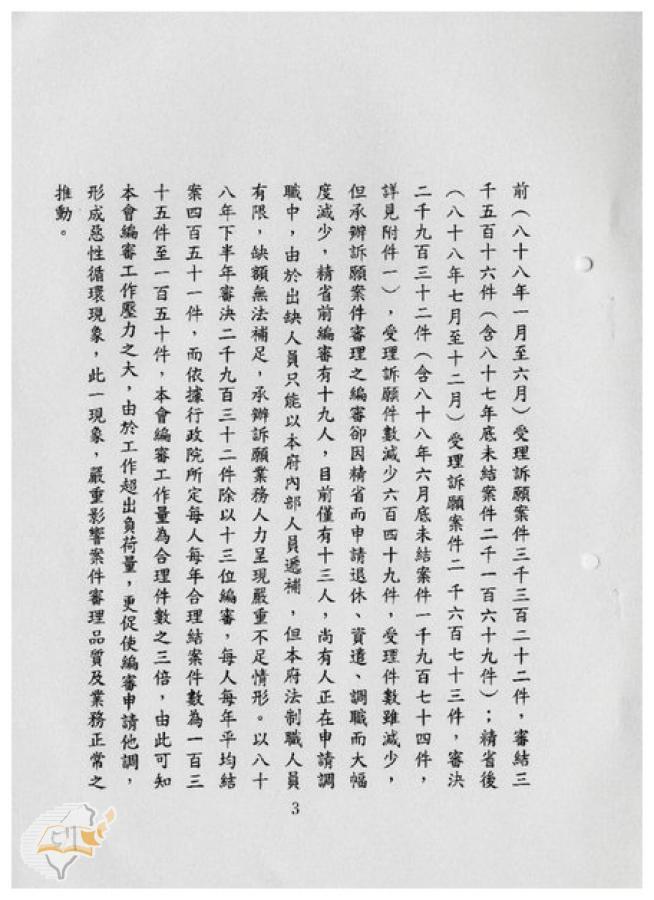 前（八十八年一月至六月）受理訴願案件三千三百二十二件，審結三
千五百十六件（含八十七年底未結案件二千一百六十九件）；精省後
（八十八年七月至十二月）受理訴願案件二千六百七十三件，審決
二千九百三十二件（含八十八年六月底未結案件一千九百七十四件，
詳見附件一），受理訴願件數減少六百四十九件，受理件數雖減少，
但承辦訴願案件審理之編審卻因精省而申請退休、資遣、調職而大幅
度減少，精省前編審有十九人，目前僅有十三人，尚有人正在申請調
職中，由於出缺人員只能以本府內部人員遞補，但本府法制職人員
有限，缺額無法補足，承辦訴願業務人力呈現嚴重不足情形。以八十
八年下半年審決二千九百三十二件除以十三位編審，每人每年平均結
案四百五十一件，而依據行政院所定每人每年合理結案件數為一百三
十五件至一百五十件，本會編審工作量為合理件數之三倍，由此可知
本會編審工作壓力之大，由於工作超出負荷量，更促使編審申請他調，
形成惡性循環現象，此一現象，嚴重影響案件審理品質及業務正常之
推動。
3